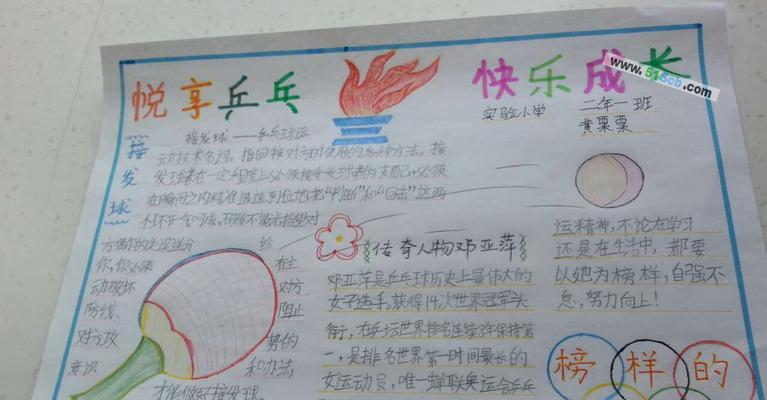 悦享乒乓
快乐成长
www.51Scb.com
实验小学 二年一班
黄栗栗
接发球
接发球——乒乓球运
动技术名词。指回接对方时使用的各种方法。接
发球者在一定程度上必须接受发球者的支配，必须
在瞬间之内 到位 "判断"和"回击"这两
个环节
给
你，你必须 在上
动破坏 对方
防线、 阻止
对方攻 势的
意识 和办法
才能做好接发球。
传奇人物邓亚萍
邓亚萍是乒乓球历史上最伟大的
女子选手。获得14次世界冠军头
衔，在乒坛世界排名连续8年保持第
一，是排名世界第一时间最长的
女运动员，唯一蝉联奥运会乒乓
运精神，不论在学习
还是在生活中，都要
以她为榜样，自强不
息，努力向上！
榜样的